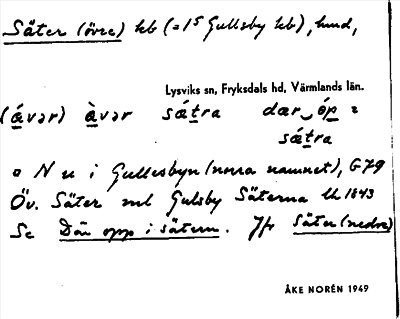 Säter (övre) hb (= 1 S Gullsby hb), hmd,
Lysviks sn, Fryksdals hd, Värmlands län.
(ávər) àvər sátra dær‿óp =
sátra
¤ N u i Gullesbyn (norra namnet), G79
Öv. Säter ml Gulsby Säterna Lk 1843
Se Där opp i sätern. Jfr Säter (nedre)
ÅKE NORÉN 1949